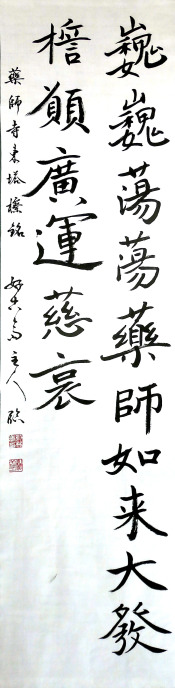 巍巍蕩蕩藥師如来大發
擔願廣運慈哀
藥師寺東塔檫銘
主人